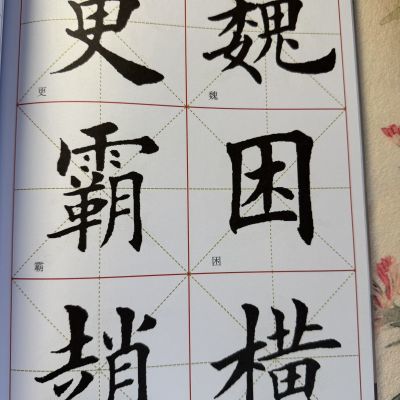 更
更
霸
霸
趙
魏
魏
困
困
横